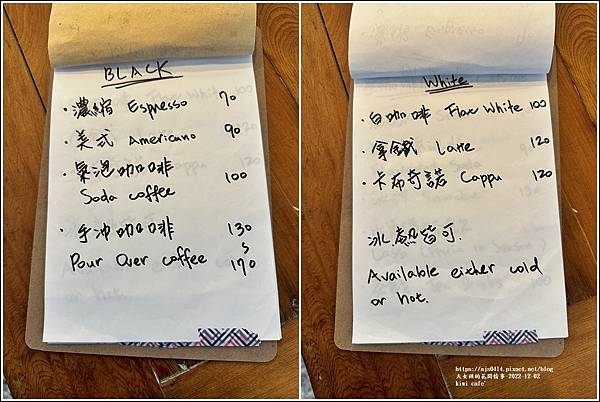 BLACK
·濃縮 Espresso 70
·美式 Americano 90
·氣泡咖啡
Soda coffee 100
·手沖咖啡 130
Pour Over coffee 170
White
·白咖啡 Flat White 100
·拿鐵 Latte 120
·卡布奇諾 Cappu 120
冰熱皆可.
Available either cold
or hot.
https://njs0414.pixnet.net/blog
大女孩的花間情事-2022-12-02
kimi cafe'